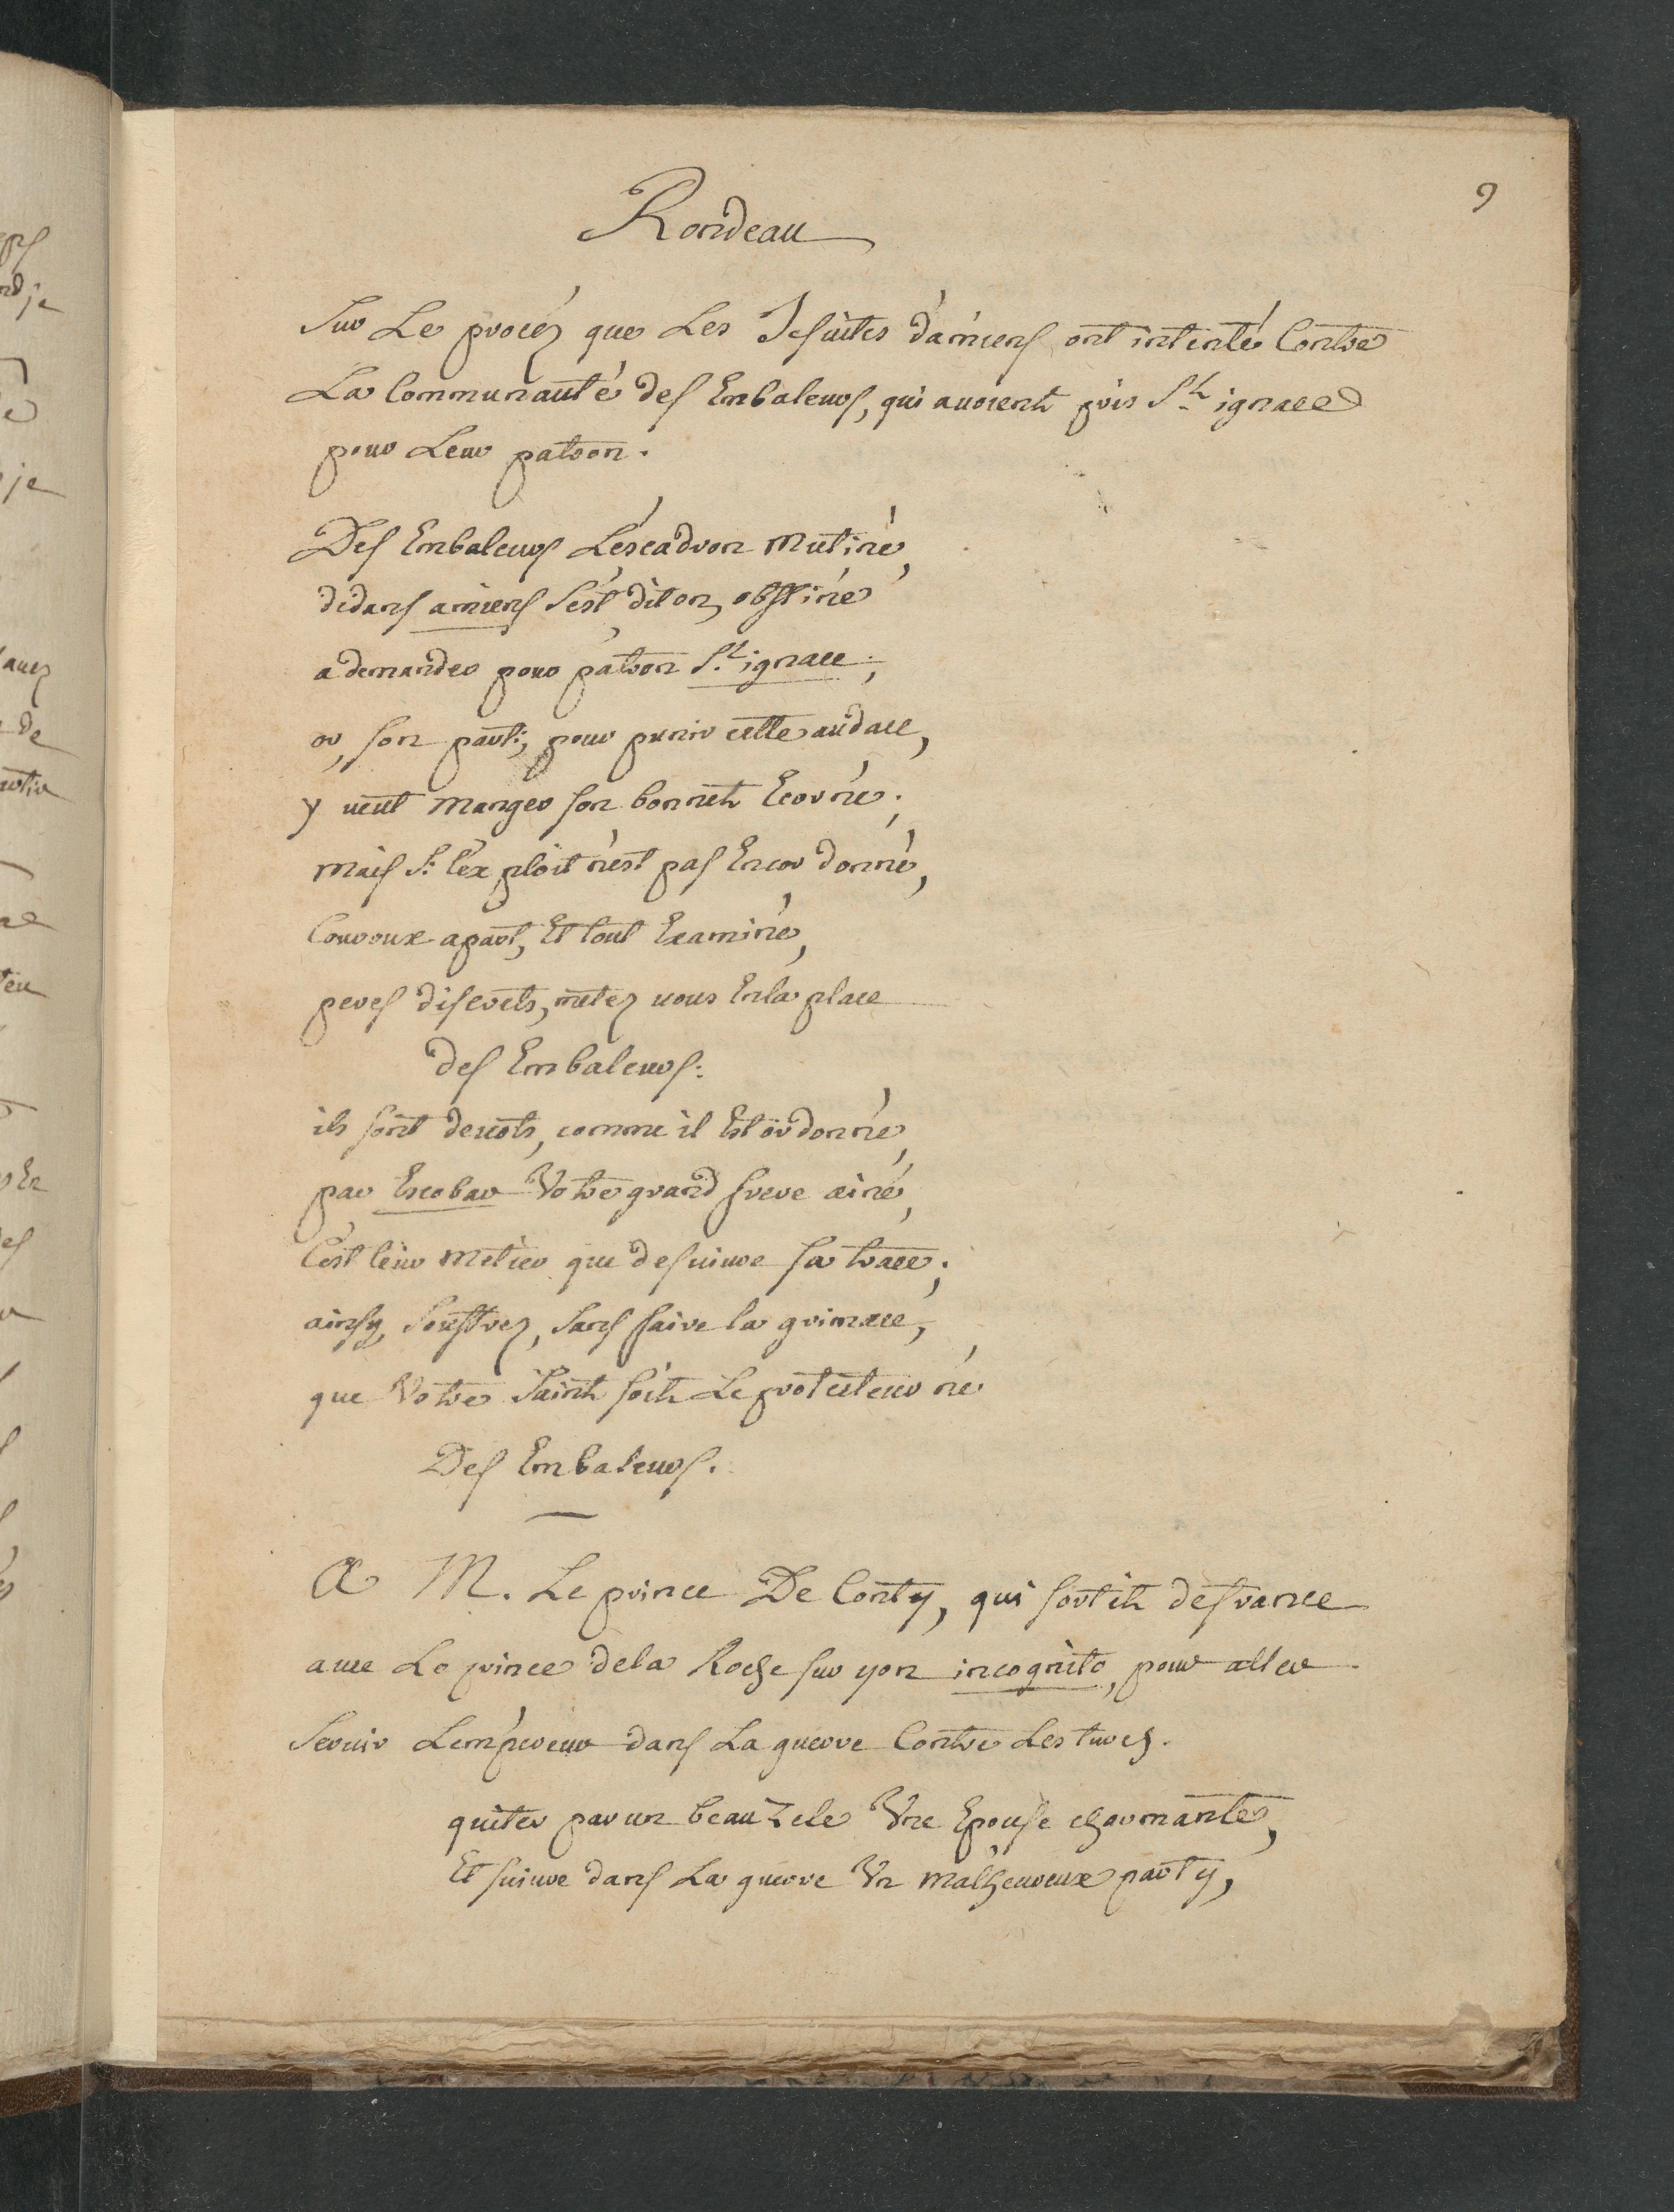 9
Rondeau
Sur Le procéz que Les Jesuites d'amiens ont intenté Contre
La Communauté des Embaleurs, qui auoient pris St ignace
pour Leur patron.
Des Embaleurs L'escadron mutiné,
dedans amiens s'est, dit on, obstiné
a demander pour patron St ignace;
or, son parti, pour punir cette audace,
y veut manger son bonnet Ecorné;
mais si l'exploit n'est pas Encor donné,
Couroux apart, Et tout Examiné,
peres discrets, metez vous En la place
des Embaleurs:
ils sont devots, comme il Est ordonné,
par Escobar Votre grand frere ainé,
C'est leur métier que de suivre sa trace;
ainsy, souffrez, sans faire la grimace,
que Votre Saint soit Le protecteur né
Des Embaleurs.
A M. Le prince De Conty, qui sortit de france
avec Le prince de la Roche sur yon incognito, pour aller
Servir L'empereur dans La guerre Contre Les turcs.
quiter par un beau zele Une Epouse charmante,
Et suivre dans La guerre Un malheureux party,